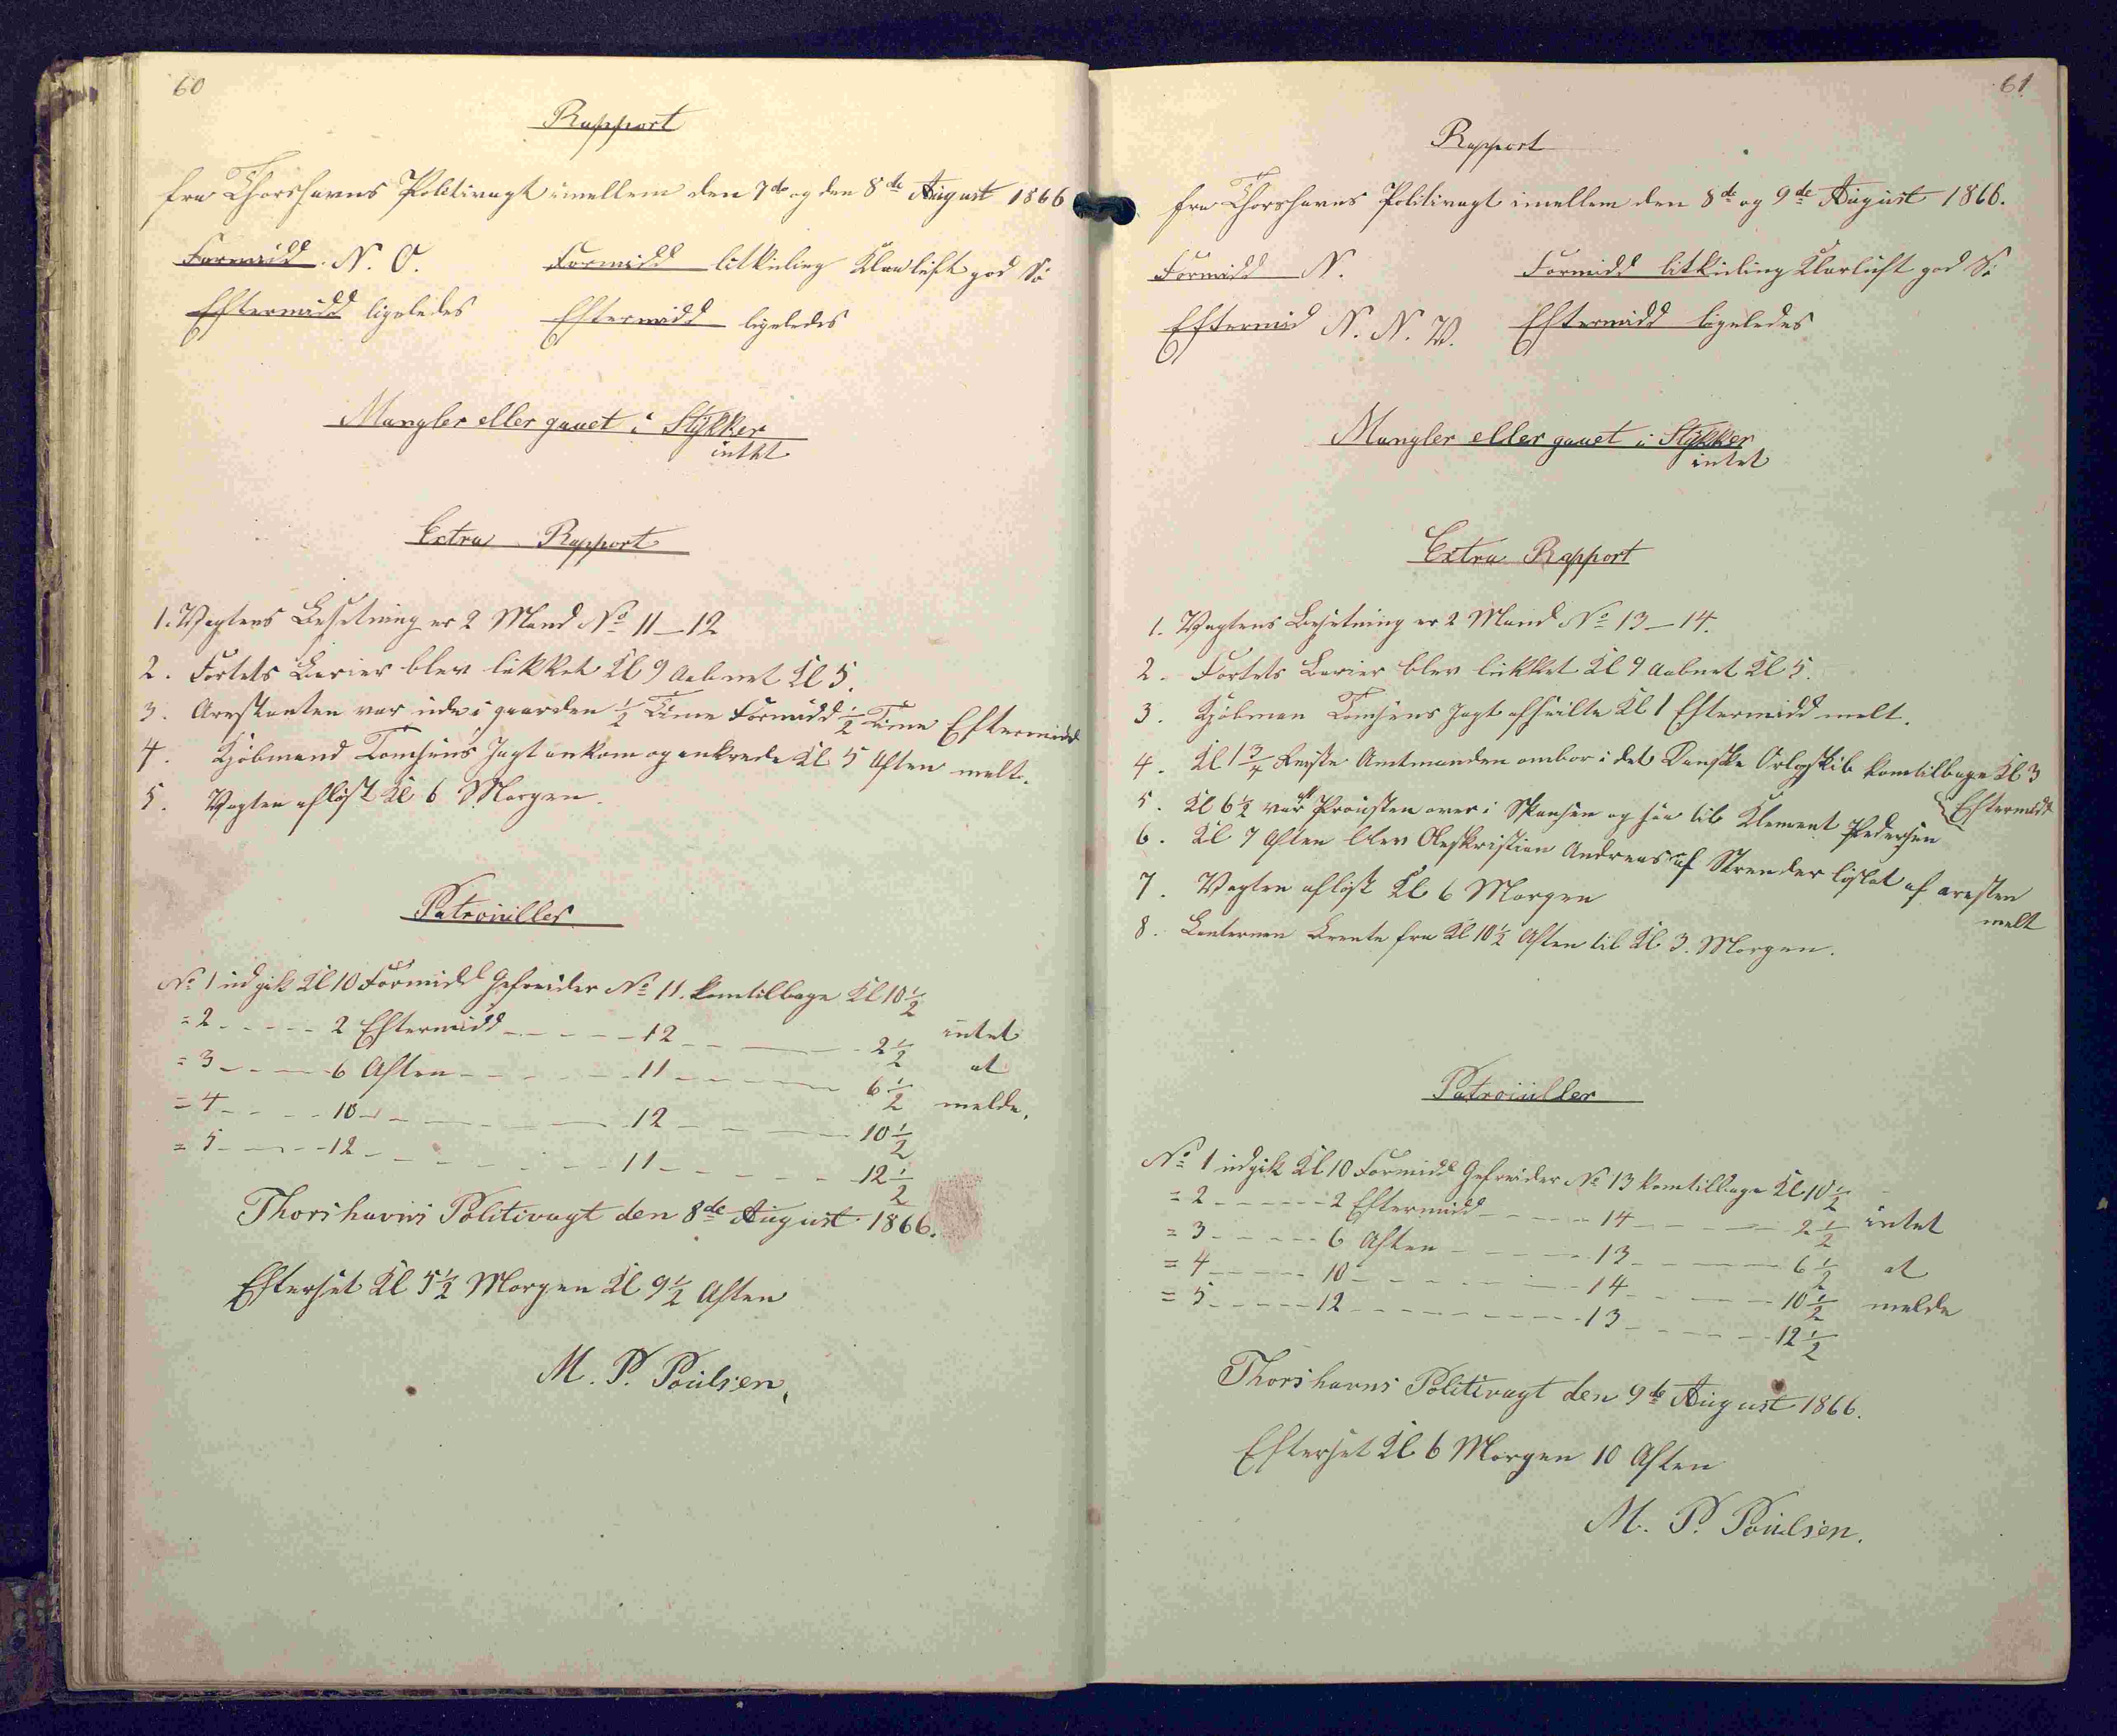 60
Rapport
fra Thorshavns Politivagt imellem den 7de og den 8de August 1866
Formidd. N. O. Formidd litkuling Klarluft god Sö
Eftermidd ligeledes Eftermidd ligeledes
Mangler eller gaaet i Stykker
intet
Extra Rapport
1. Vagtens Besetning er 2 Mand No 11-12
2. Fortets Barier blev lukket Kl 9 Aabnet Kl 5.
3. Arestanten var ude i gaarden 1/2 Time Formidd 1/2 Time Eftermidd
4. Kjöbmand Tomsens Jagt ankom og ankrede Kl 5 Aften melt.
5. Vagten aflöst Kl 6 Morgen.
Patrouiller
No 1 udgik Kl 10 Formidd Gefreider No 11. kom tilbage Kl 10 1/2
= 2 - - - - - 2 Eftermidd - - - - - 12 - - - - - 2 1/2 intet
= 3 - - - - - 6 Aften - - - - - 11 - - - - - 6 1/2 at
= 4 - - - - - 10 - - - - - 12 - - - - - 10 1/2 melde.
= 5 - - - - - 12 - - - - - 11 - - - - - 12 1/2
Thorshavns Politivagt den 8de August 1866.
Efterset Kl 5 1/2 Morgen Kl 9 1/2 Aften
M. P. Poulsen,
61
Rapport
fra Thorshavns Politivagt imellem den 8de og 9de August 1866.
Formidd N. Formidd litkuling Klarluft god Sö
Eftermid N. N. V. Eftermidd ligeledes
Mangler eller gaaet i Stykker
intet
Extra Rapport
1. Vagtens Besetning er 2 Mand No 13-14.
2. Fortets Barier blev lukket Kl 9 Aabnet Kl 5.
3. Kjöbman Tomsens Jagt afseilte Kl 1 Eftermidd melt.
4. Kl 1 3/4 Reiste Amtmanden ombor i det Danske Orlogskib kom tilbage Kl 3
Eftermidd
5. Kl 6 1/2 var Prousten over i Skansen og saa til Klement Pedersen
6. Kl 7 Aften blev Olekristian Andreas af Strender löslat af aresten
melt
7. Vagten aflöst Kl 6 Morgen
8. Lanternen Brente fra Kl 10 1/2 Aften til Kl 3. Morgen.
Patrouiller
No 1 udgik Kl 10 Formidd Gefreider No 13 kom tilbage Kl 10 1/2
= 2 - - - - - 2 Eftermidd - - - - - 14 - - - - - 2 1/2 intet
= 3 - - - - - 6 Aften - - - - - 13 - - - - - 6 1/2 at
= 4 - - - - - 10 - - - - - 14 - - - - - 10 1/2 melde
= 5 - - - - - 12 - - - - - 13 - - - - - 12 1/2
Thorshavns Politivagt den 9de August 1866.
Efterset Kl 6 Morgen 10 Aften
M. P. Poulsen.